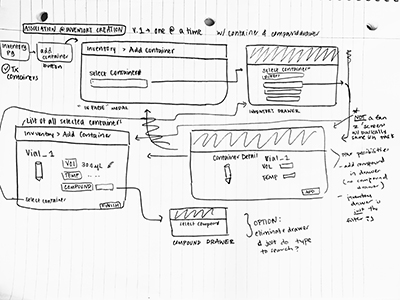 ASSOCIATION @ INVENTORY CREATION v.1 → one @ a time w/ container & compound drawer
Inventory
pg
add
container
button
Tx
containers
Inventory > Add Container
Select Container
Select container
INVENTORY DRAWER
List of all selected containers
Inventory > Add Container
Vial_1
VOL 30.0 mL
TEMP
COMPOUND
select container
FINISH
Container Detail
Vial_1
VOL
TEMP
ADD
* NOT a fan
- add compound
in drawer
(no compound
drawer)
- inventory
drawer is
just the
select compound
COMPOUND DRAWER
OPTION:
eliminate drawer
& just do type
to search?